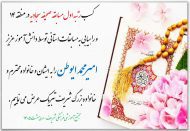 کسب رتبه اول مسابقه صحیفه سجادیه در منطقه ۱۴
و راهیابی به مسابقات استانی توسط دانش آموز عزیز
امیرمحمد ابوطن را به ایشان و خانواده محترم و
خانواده بزرگ شریعت تبریک عرض می نماییم.